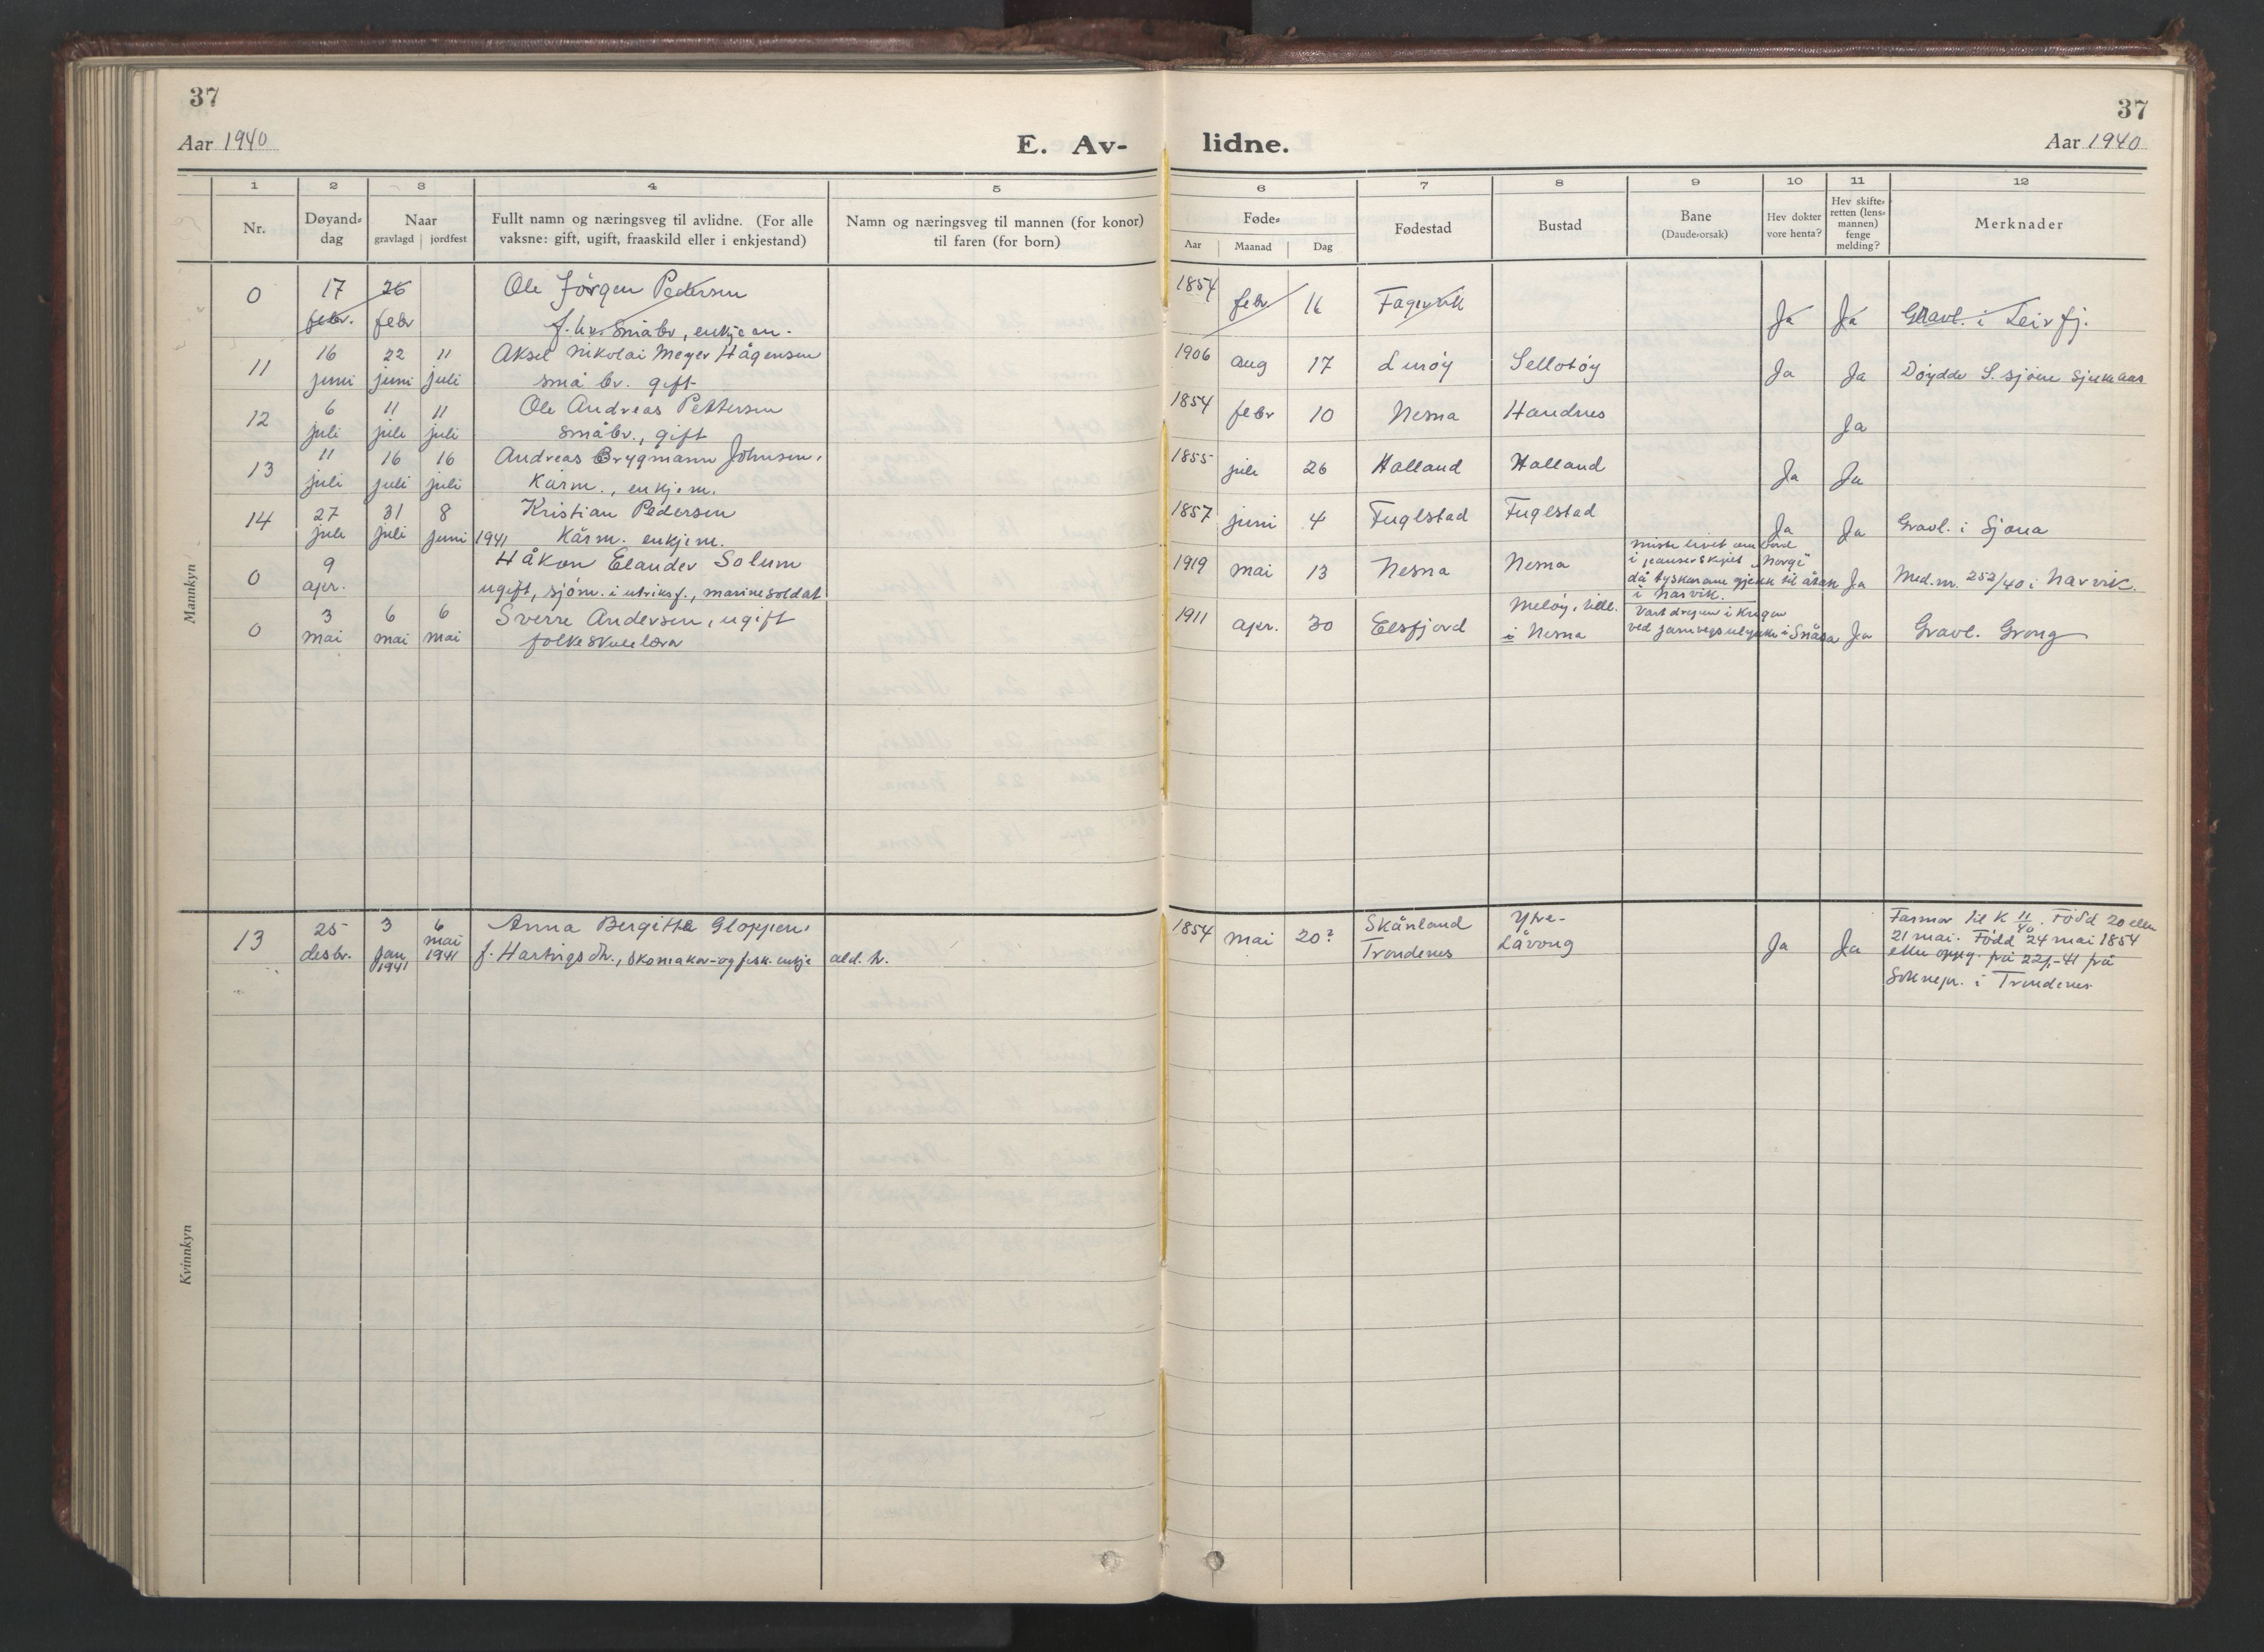 37
37
Aar 1940
E. Av-
lidne.
Aar 1940
1 2 3 4 5
6 7 8 9 10 11 12
Nr.
Døyand-
dag
Naar
gravlagd jordfest
Fullt namn og næringsveg til avlidne. (For alle
vaksne: gift, ugift, fraaskild eller i enkjestand)
Namn og næringsveg til mannen (for konor)
til faren (for born)
Føde-
Aar Maanad Dag
Fødestad
Bustad
Bane
(Daude-orsak)
Hev dokter
vore henta?
Hev skifte-
retten (lens-
mannen)
fenge
melding?
Merknader
Mannkyn
0 17 26 Ole Jörgen Pedersen 1854 febr 16 Fagervik Ja Ja Gravl. i Leirfj.
febr. febr f. hv. småbr, enkjeman.
11 16 22 11 Aksel Nikolai Meyer Hågensen 1906 aug 17 Lurøy Selløtøy Ja Ja Döydde S. sjöen sjukehus
juni juni juli småbr. gift
12 6 11 11 Ole Andreas Pettersen 1854 febr 10 Nesna Handnes Ja
juli juli juli småbr., gift
13 11 16 16 Andreas Brygmann Johnsen, 1855 juli 26 Halland Halland Ja Ja
juli juli juli Kårm., enkjem.
14 27 31 8 Kristian Pedersen 1857 juni 4 Fuglstad Fuglstad Ja Ja Gravl. i Sjona
juli juli juni 1941 Kårm. enkjem.
0 9 Håkon Elander Solum 1919 mai 13 Nesna Nesna Ja Med. nr. 252/40 i Narvik.
apr. ugift, sjöm. i utriksf., marinesoldat
miste livet om bord
i panserskipet "Norge"
då tyskarane gjekk til åtak
i Narvik.
0 3 6 6 Sverre Andersen, ugift 1911 apr. 30 Elsfjord Meløy, till. Ja Gravl. Grong
mai mai mai folkeskulelærar i Nesna
Vart drepen i Krigen
ved jarnvegsulykke i Snåsa
Kvinnkyn
13 25 3 6 Anna Bergitte Gloppen, 1854 mai 20? Skånland Ytre- Ja Ja
desbr. jan. 1941 mai 1941 f. Hartvigsdtr., skomakar- og fisk. enkje ald. tr. Trondenes Låvong
Farmor til K 11/40. Född 20 eller
21 mai. Född 24 mai 1854
etter oppg. frå 22/1-41 frå
Soknepr. i Trondenes.